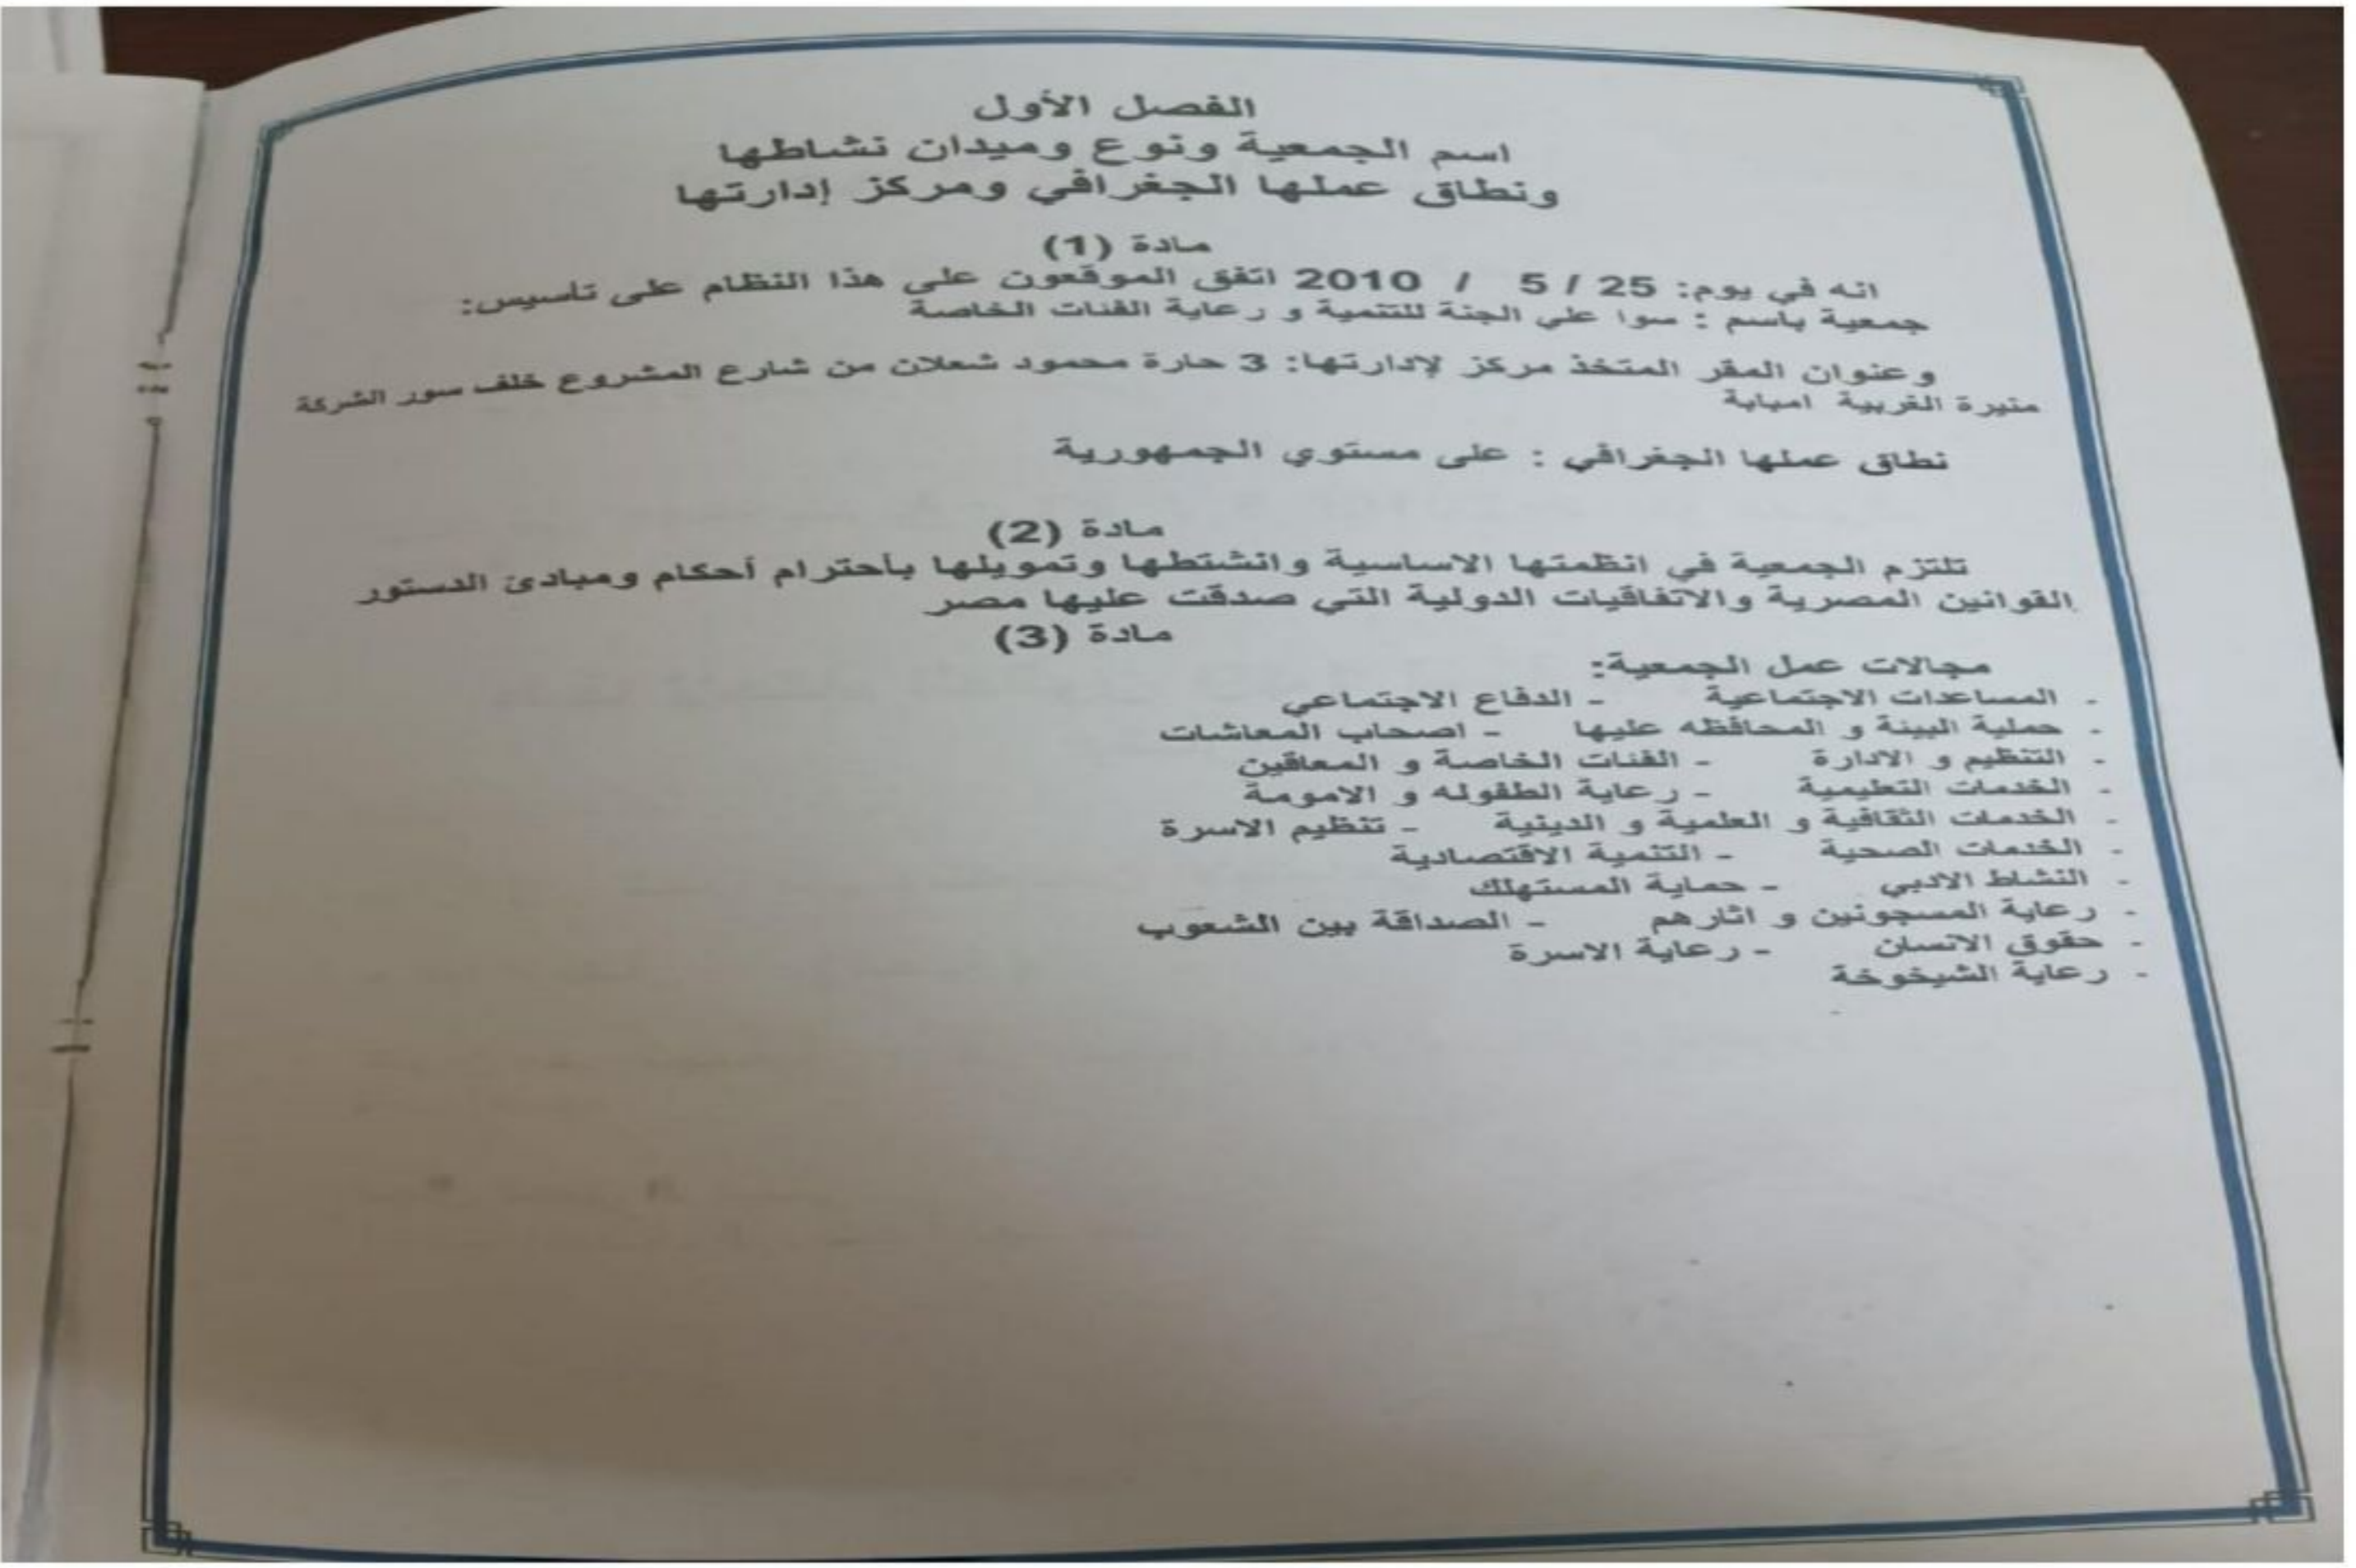 الفصل الأول
اسم الجمعية ونوع وميدان نشاطها
ونطاق عملها الجغرافي ومركز إدارتها
مادة (1)
انه في يوم: 25 / 5 / 2010 اتفق الموقعون علي هذا النظام على تاسيس:
جمعية باسم : سوا علي الجنة للتنمية و رعاية الفئات الخاصة
وعنوان المقر المتخذ مركز لإدارتها: 3 حارة محمود شعلان من شارع المشروع خلف سور الشركة
منيرة الغربية امبابة
نطاق عملها الجغرافي : على مستوي الجمهورية
مادة (2)
تلتزم الجمعية في انظمتها الاساسية وانشتطها وتمويلها بأحترام أحكام ومبادئ الدستور
القوانين المصرية والاتفاقيات الدولية التي صدقت عليها مصر
مادة (3)
مجالات عمل الجمعية:
- المساعدات الاجتماعية - الدفاع الاجتماعي
- حملية البيئة و المحافظه عليها - اصحاب المعاشات
- التنظيم و الادارة - الفئات الخاصة و المعاقين
- الخدمات التعليمية - رعاية الطفوله و الامومة
- الخدمات الثقافية و العلمية و الدينية - تنظيم الاسرة
- الخدمات الصحية - التنمية الاقتصادية
- النشاط الادبي - حماية المستهلك
- رعاية المسجونين و اثارهم - الصداقة بين الشعوب
- حقوق الانسان - رعاية الاسرة
- رعاية الشيخوخة